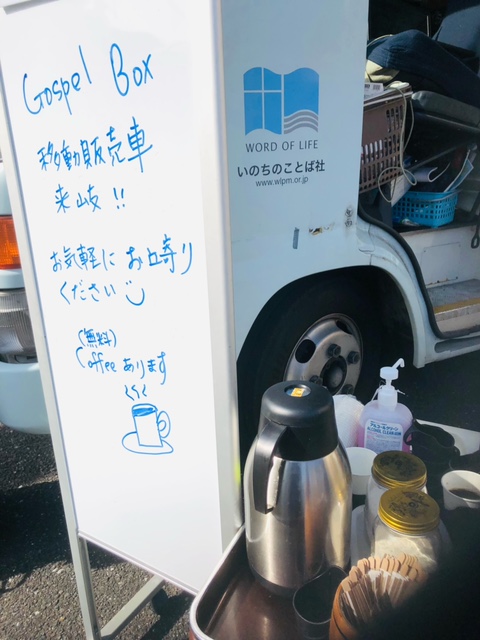 Gospel Box
移動販売車
来岐!!
お気軽に お立寄り
ください
(無料)
Coffee あります
WORD OF LIFE
いのちのことば社
www.wlpm.or.jp